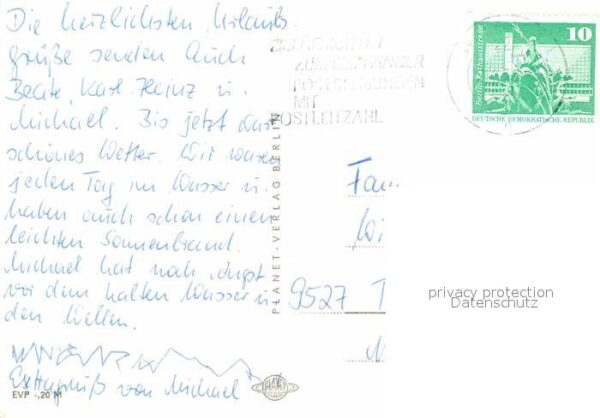 Die herzlichsten Urlaubs-
grüße senden Euch
Beate, Karl-Heinz u.
Michael. Bis jetzt war
schönes Wetter. Wir waren
jeden Tag im Wasser u.
haben auch schon einen
leichten Sonnenbrand.
Michael hat noch Angst
vor dem kalten Wasser u.
den Wellen.
Extragruß von Michael
EVP -,20 M
PLANET-VERLAG BERLIN
PLANET
ZUEINANDER
POSTSENDUNGEN
MIT
POSTLEITZAHL
10
Berlin, Rathausstraße
DEUTSCHE DEMOKRATISCHE REPUBLIK
Fam
9527
privacy protection
Datenschutz